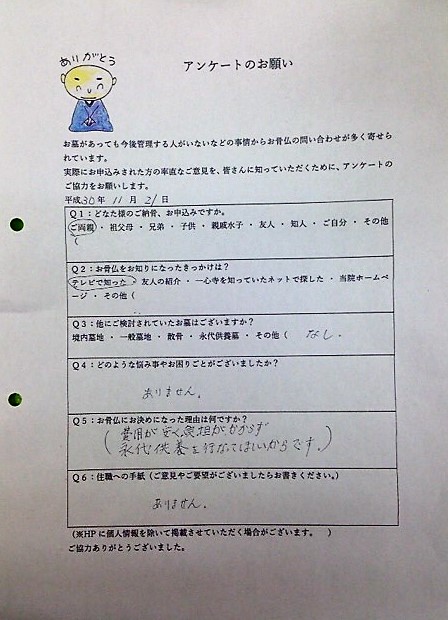 ありがとう
アンケートのお願い
お墓があっても今後管理する人がいないなどの事情からお骨仏の問い合わせが多く寄せら
れています。
実際にお申込みされた方の率直なご意見を、皆さんに知っていただくために、アンケートの
ご協力をお願いします。
平成30年 11月 21日
Q1：どなた様のご納骨、お申込みですか。
ご両親・祖父母・兄弟・子供・親戚水子・友人・知人・ご自分・その他
（
Q2：お骨仏をお知りになったきっかけは？
テレビで知った・友人の紹介・一心寺を知っていたネットで探した・当院ホームペ
ージ・その他（
Q3：他にご検討されていたお墓はございますか？
境内墓地・一般墓地・散骨・永代供養墓・その他（ なし.
Q4：どのような悩み事やお困りごとがございましたか？
ありません。
Q5：お骨仏にお決めになった理由は何ですか？
（費用が安く負担がかからず
永代供養を行なてほしいからです。）
Q6：住職への手紙（ご意見やご要望がございましたらお書きください。）
ありません。
（※HPに個人情報を除いて掲載させていただく場合がございます。 ）
ご協力ありがとうございました。